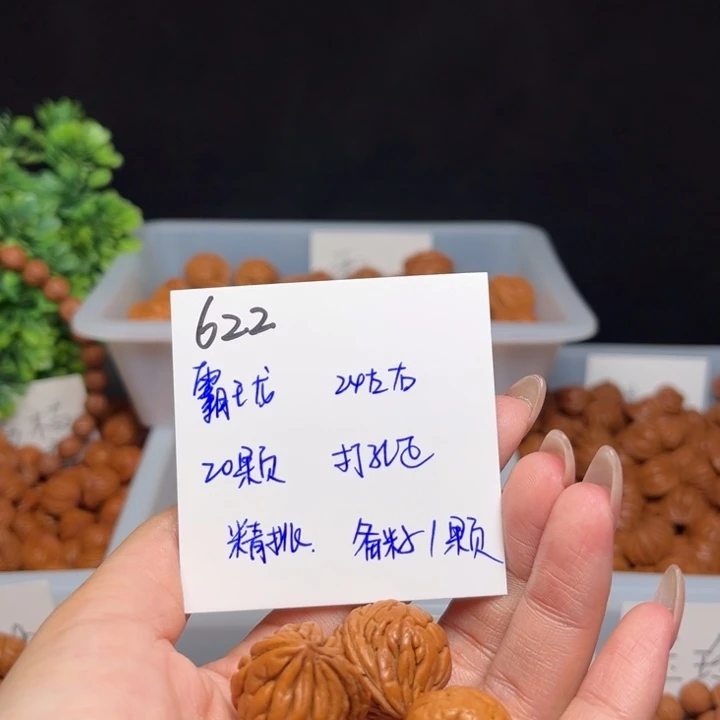 622
霸王龙 24左右
20颗 打孔包
精挑. 备籽1颗